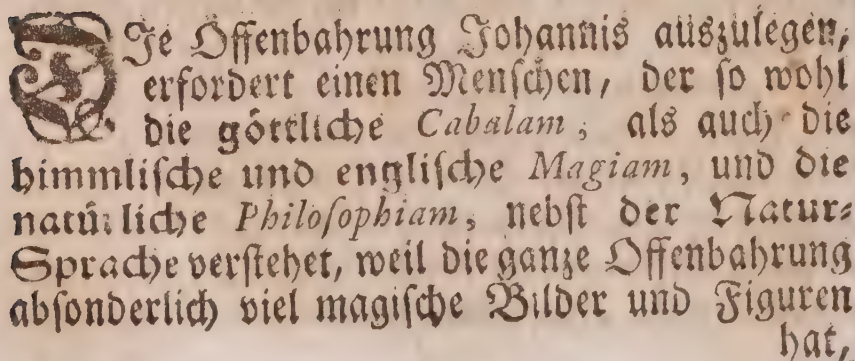 DJe Offenbahrung Johannis auszulegen,
erfordert einen Menschen, der so wohl
die göttliche Cabalam, als auch die
himmlische und englische Magiam, und die
natürliche Philosophiam, nebst der Natur-
Sprache verstehet, weil die ganze Offenbahrung
absonderlich viel magische Bilder und Figuren
hat,